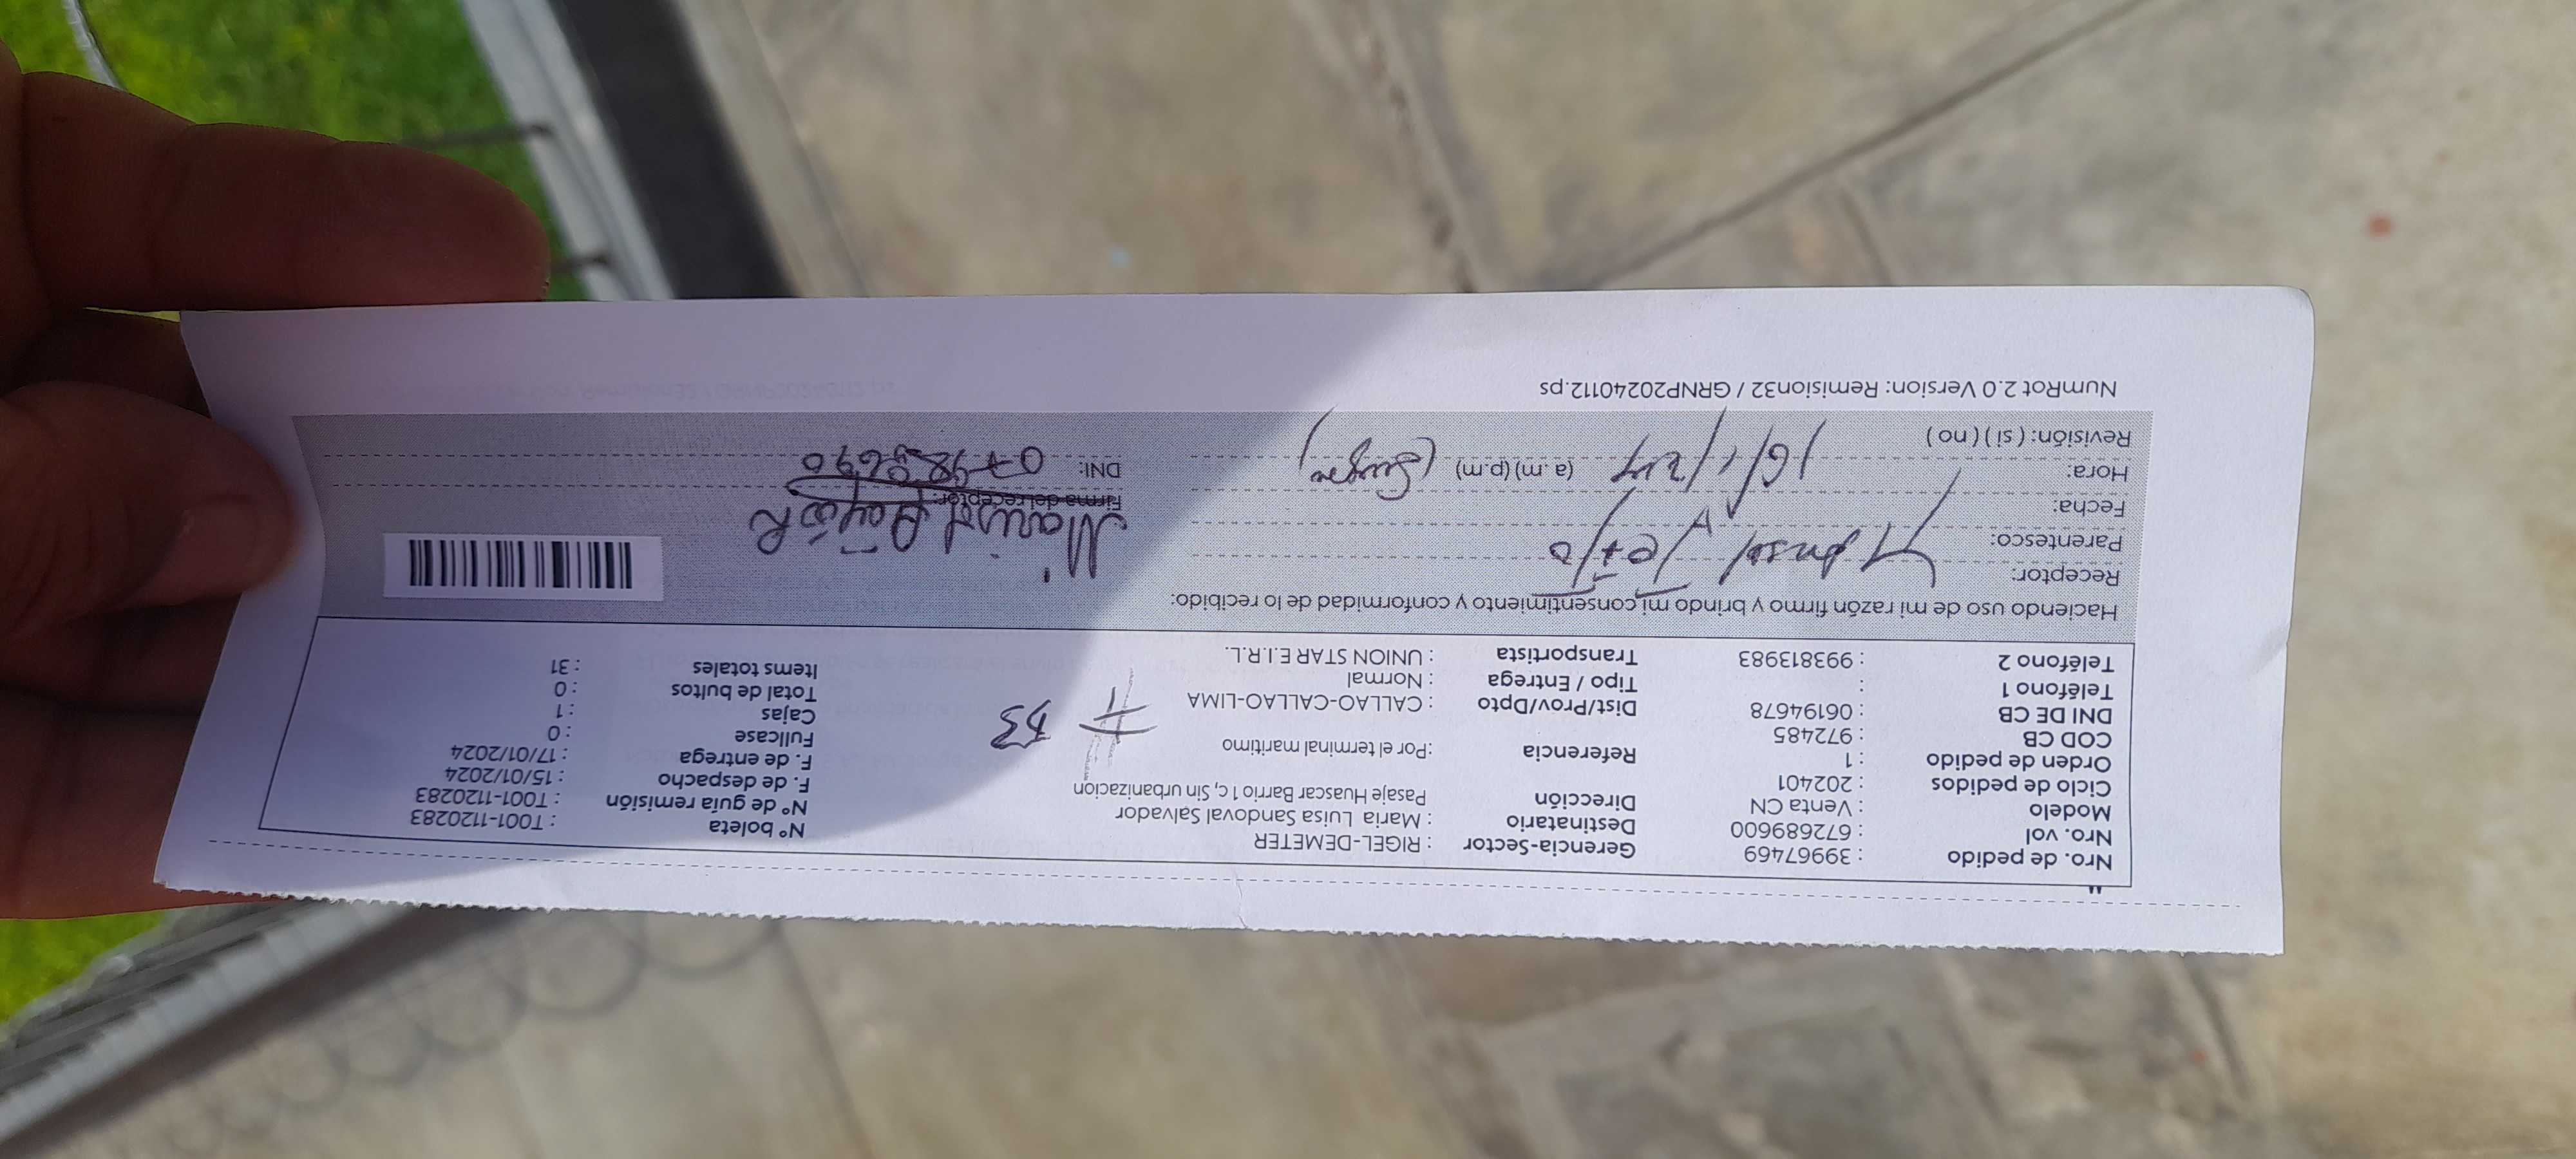 Nro. de pedido : 39967469 Gerencia-Sector : RIGEL-DEMETER Nº boleta : T001-1120283
Nro. vol : 672689600 Destinatario : Maria Luisa Sandoval Salvador Nº de guía remisión : T001-1120283
Modelo : Venta CN Dirección Pasaje Huascar Barrio 1 c, Sin urbanizacion F. de despacho : 15/01/2024
Ciclo de pedidos : 202401 F. de entrega : 17/01/2024
Orden de pedido : 1 Referencia : Por el terminal maritimo Fullcase : 0
COD CB : 972485 # 53 Cajas : 1
DNI DE CB : 06194678 Dist/Prov/Dpto : CALLAO-CALLAO-LIMA Total de bultos : 0
Teléfono 1 : Tipo / Entrega : Normal Items totales : 31
Teléfono 2 : 993813983 Transportista : UNION STAR E.I.R.L.
Haciendo uso de mi razón firmo y brindo mi consentimiento y conformidad de lo recibido:
Receptor:
Parentesco:
Fecha: Marisol
Firma del receptor:
Hora: 16/1/24 (a.m) (p.m) DNI:
Revisión: ( si ) ( no )
NumRot 2.0 Version: Remision32 / GRNP20240112.ps